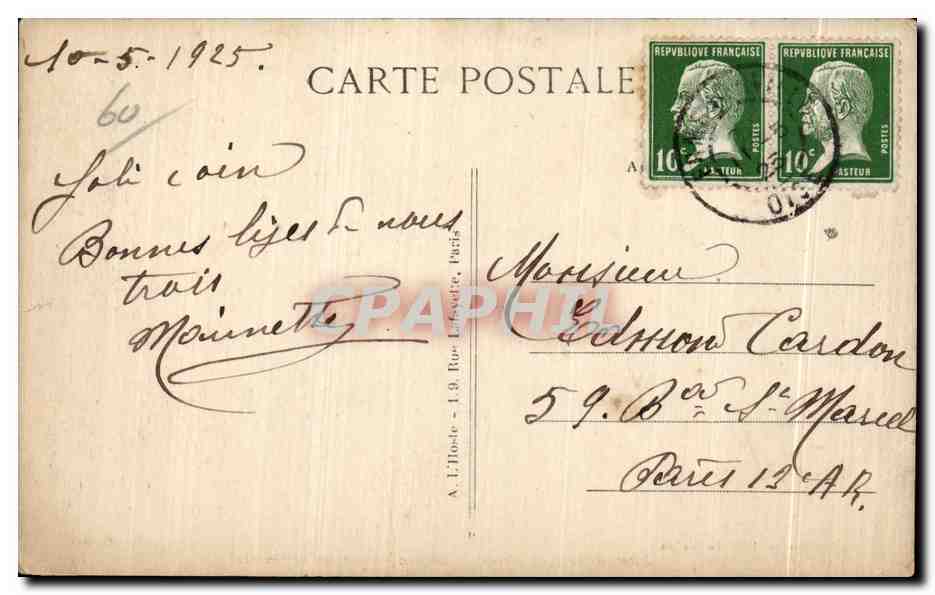 10-5-1925.
CARTE POSTALE
REPVBLIQUE FRANÇAISE
REPVBLIQUE FRANÇAISE
POSTES
POSTES
10c
10c
PASTEUR
PASTEUR
60
Joli coin
Bonnes bises de nous
trois
Mainette
CPAPHIL
A. L'Hoste - 19, Rue Lafayette, Paris
Monsieur
Edmond Cardon
59. Bd St Marcel
Paris 13 AR.